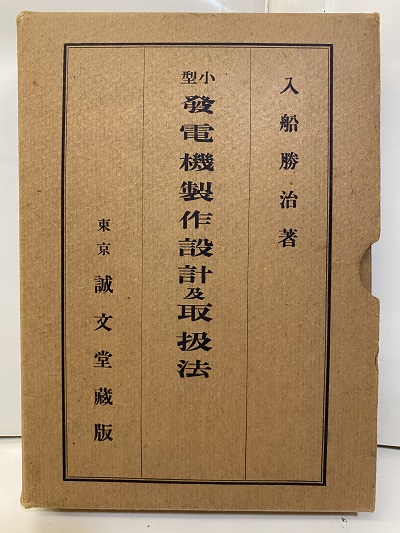 入船勝治著
小型發電機製作設計及取扱法
東京 誠文堂藏版